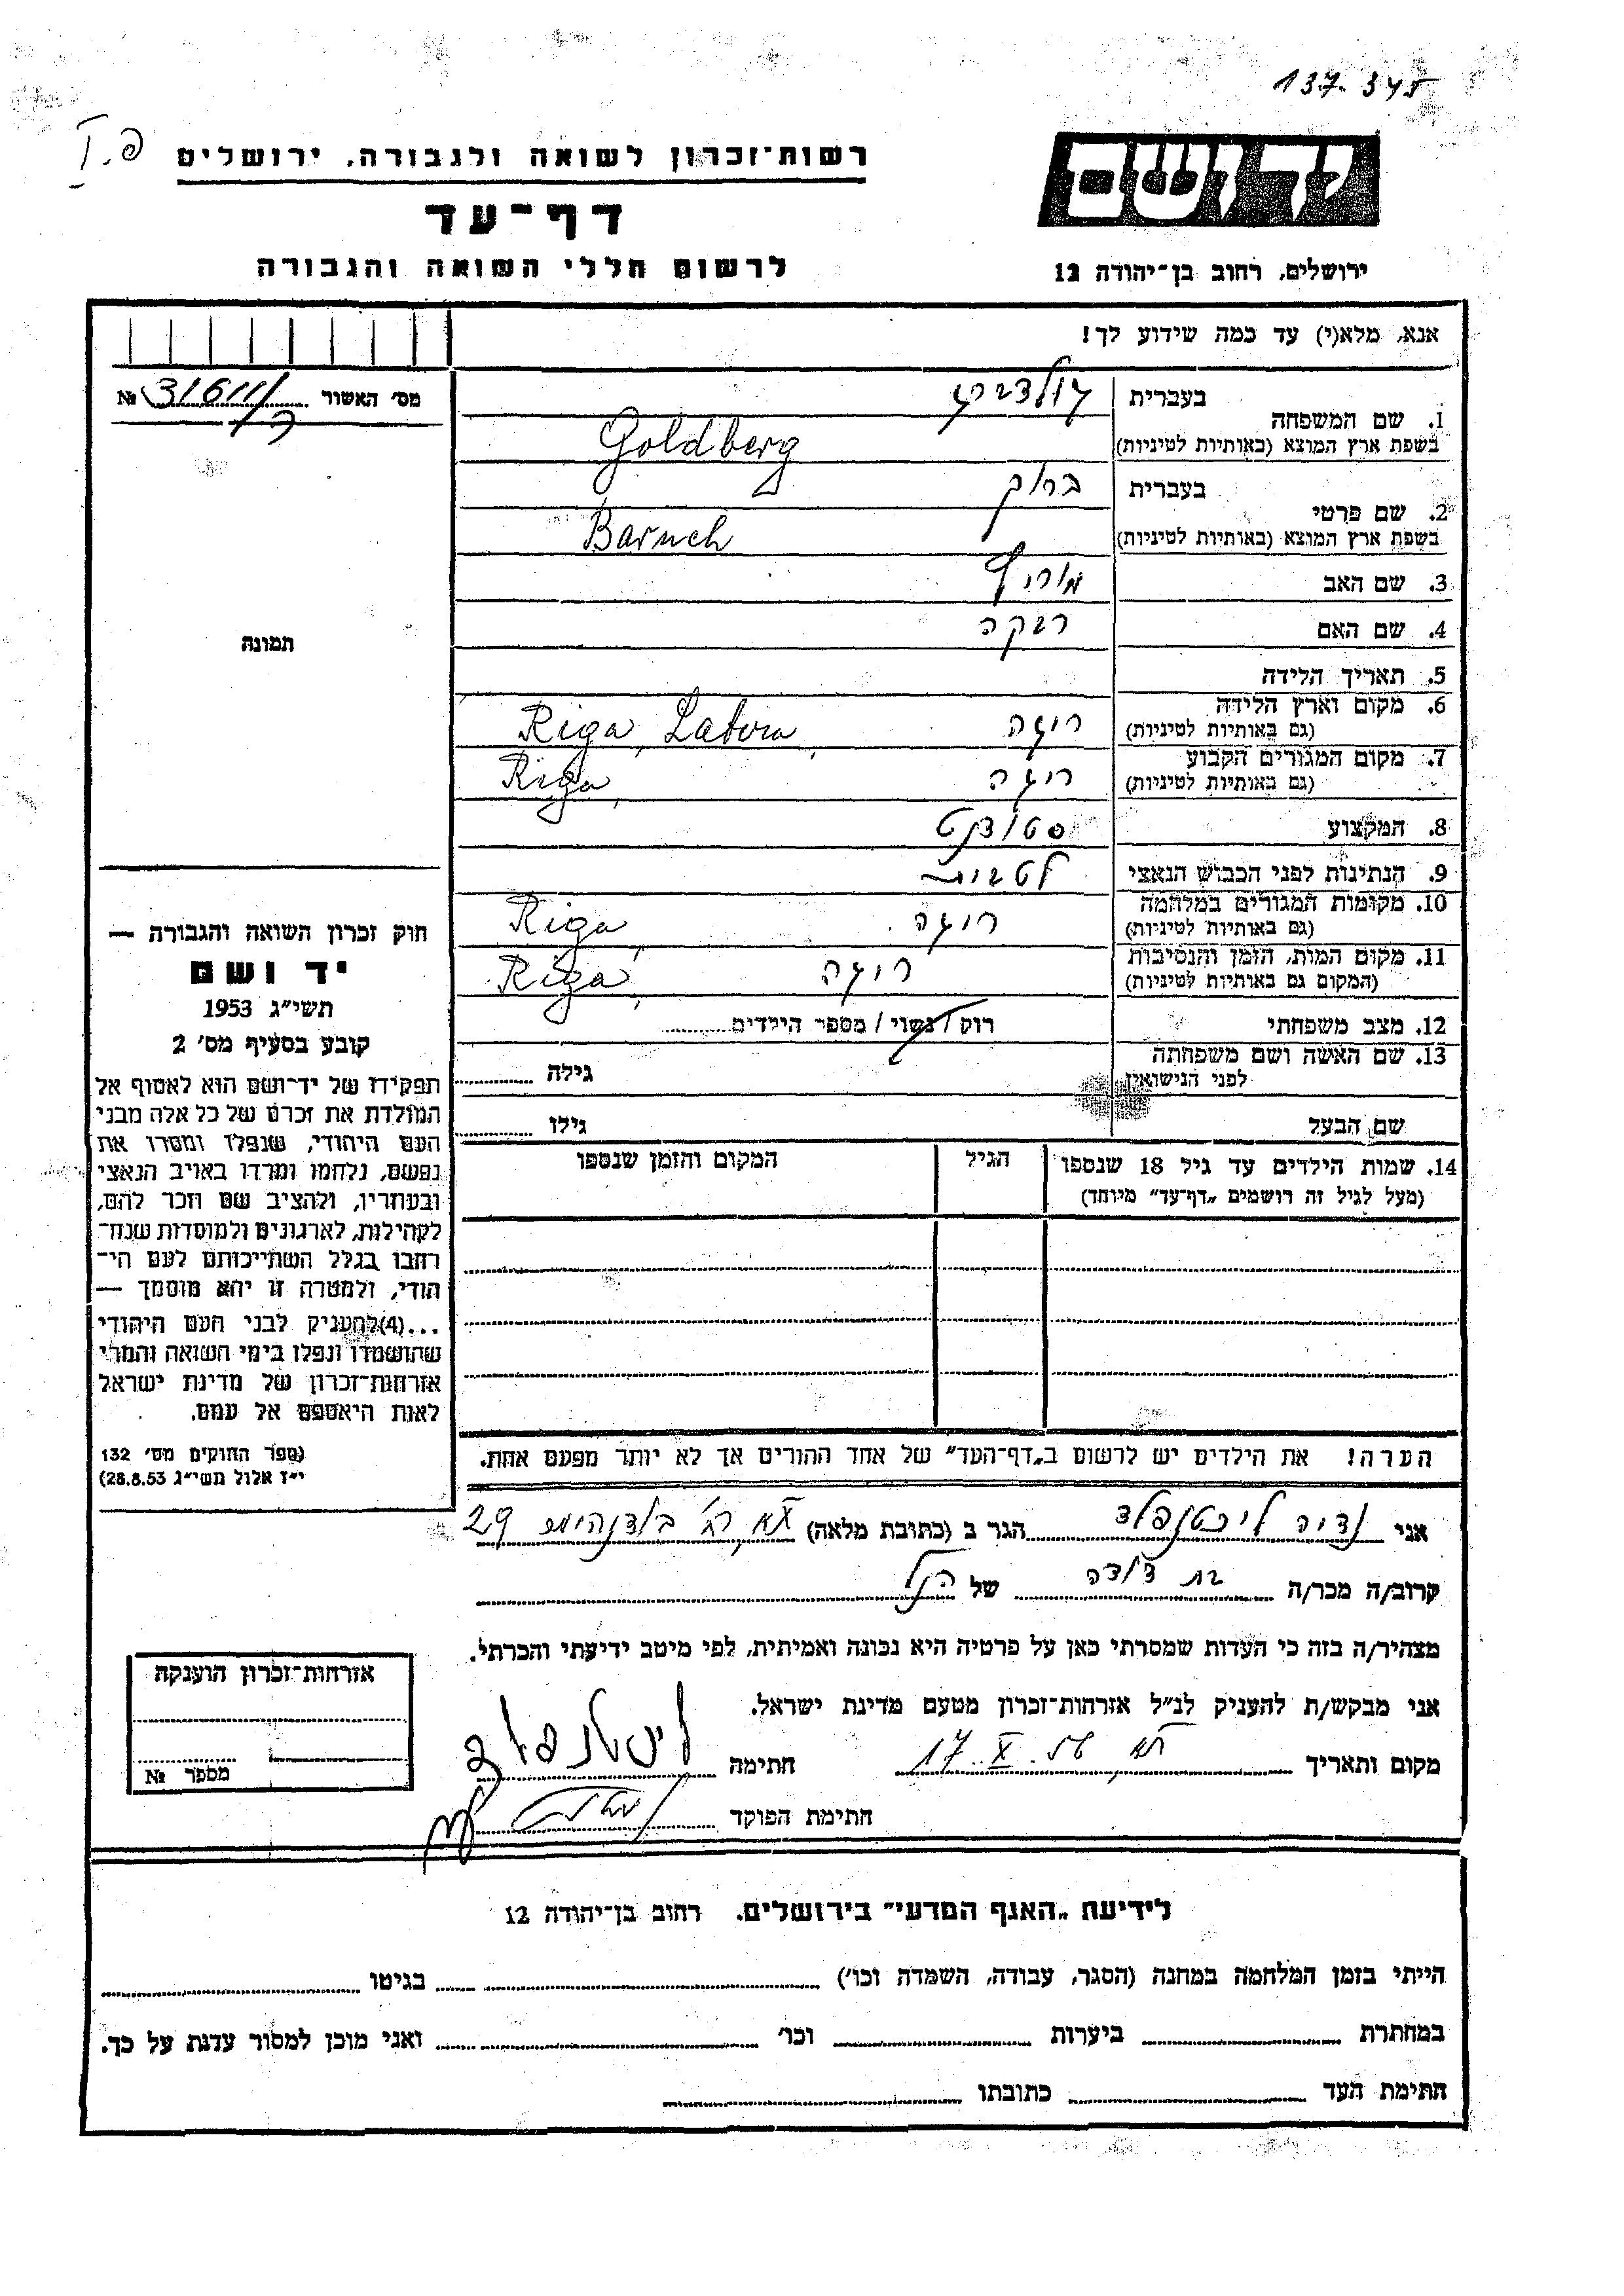 137-345
פ.I
יד ושם
רשות־זכרון לשואה ולגבורה, ירושלים
דף־עד
לרשום חללי השואה והגבורה
ירושלים, רחוב בן־יהודה 12
אנא, מלא(י) עד כמה שידוע לך!
מס׳ האשור № 31611/
1. שם המשפחה בעברית גולדברג
בשפת ארץ המוצא (באותיות לטיניות) Goldberg
2. שם פרטי בעברית ברוך
בשפת ארץ המוצא (באותיות לטיניות) Baruch
3. שם האב מוריץ
4. שם האם רבקה
5. תאריך הלידה
6. מקום וארץ הלידה (גם באותיות לטיניות) ריגה Riga, Latvia
7. מקום המגורים הקבוע (גם באותיות לטיניות) ריגה Riga,
8. המקצוע סטודנט
9. הנתינות לפני הכבוש הנאצי לטבית
10. מקומות המגורים במלחמה (גם באותיות לטיניות) ריגה Riga,
11. מקום המות, הזמן והנסיבות (המקום גם באותיות לטיניות) ריגה Riga,
12. מצב משפחתי רוק / נשוי / מספר הילדים
13. שם האשה ושם משפחתה לפני הנישואין גילה
שם הבעל גילו
14. שמות הילדים עד גיל 18 שנספו (מעל לגיל זה רושמים „דף־עד” מיוחד) הגיל המקום והזמן שנספו
תמונה
חוק זכרון השואה והגבורה —
יד ושם
תשי״ג 1953
קובע בסעיף מס׳ 2
תפקידו של יד־ושם הוא לאסוף אל
המולדת את זכרם של כל אלה מבני
העם היהודי, שנפלו ומסרו את
נפשם, נלחמו ומרדו באויב הנאצי
ובעוזריו, ולהציב שם וזכר להם,
לקהילות, לארגונים ולמוסדות שנח־
רחבו בגלל השתייכותם לעם הי־
הודי, ולמטרה זו יהא מוסמך —
...(4)להעניק לבני העם היהודי
שהושמדו ונפלו בימי השואה והמרי
אזרחות־זכרון של מדינת ישראל
לאות היאספם אל עמם.
(ספר החוקים מס׳ 132
י״ז אלול תשי״ג 28.8.53)
הערה! את הילדים יש לרשום ב„דף־העד” של אחד ההורים אך לא יותר מפעם אחת.
אני נדיה ליכטנפלד הגר ב (כתובת מלאה) תא, רח׳ בודנהימר 29
קרוב/ה מכר/ה בת דודה של הנ״ל
מצהיר/ה בזה כי העדות שמסרתי כאן על פרטיה היא נכונה ואמיתית, לפי מיטב ידיעתי והכרתי.
אני מבקש/ת להעניק לנ״ל אזרחות־זכרון מטעם מדינת ישראל.
מקום ותאריך תא, 17.X.56 חתימה ליכטנפלד
חתימת הפוקד
אזרחות־זכרון הוענקה
מספר №
לידיעת „האגף המדעי” בירושלים, רחוב בן־יהודה 12
הייתי בזמן המלחמה במחנה (הסגר, עבודה, השמדה וכו׳) בגיטו
במחתרת ביערות וכו׳ ואני מוכן למסור עדות על כך.
חתימת העד כתובתו